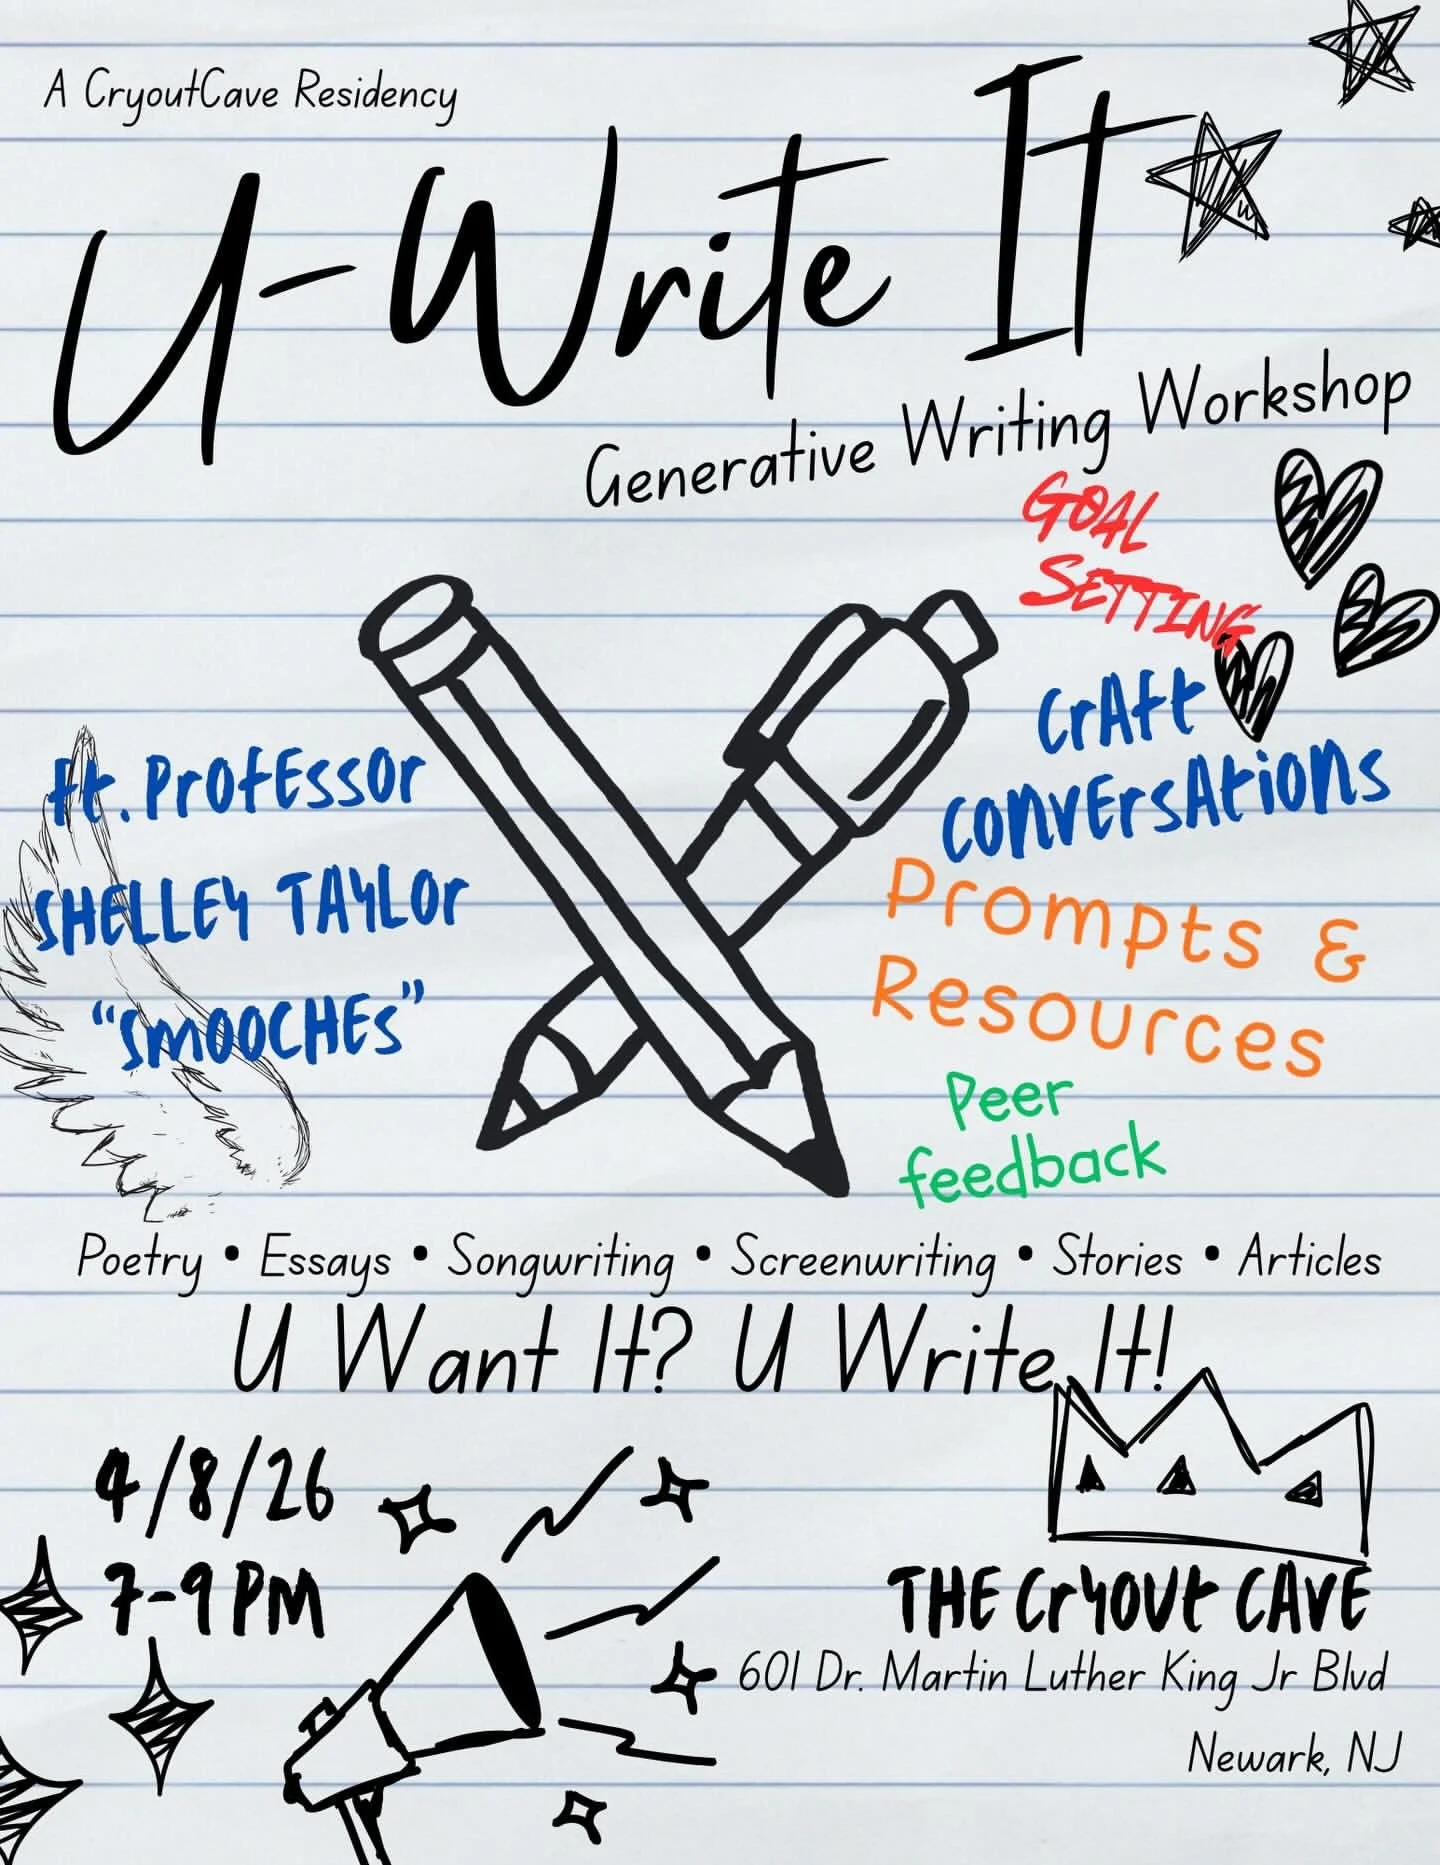 A CryoutCave Residency
U-Write It
Generative Writing Workshop
GOAL
SETTING
Craft
Conversations
Ft. Professor
Shelley Taylor
"Smooches"
Prompts &
Resources
Peer
feedback
Poetry • Essays • Songwriting • Screenwriting • Stories • Articles
U Want It? U Write It!
4/8/26
7-9 PM
The Cryout Cave
601 Dr. Martin Luther King Jr Blvd
Newark, NJ